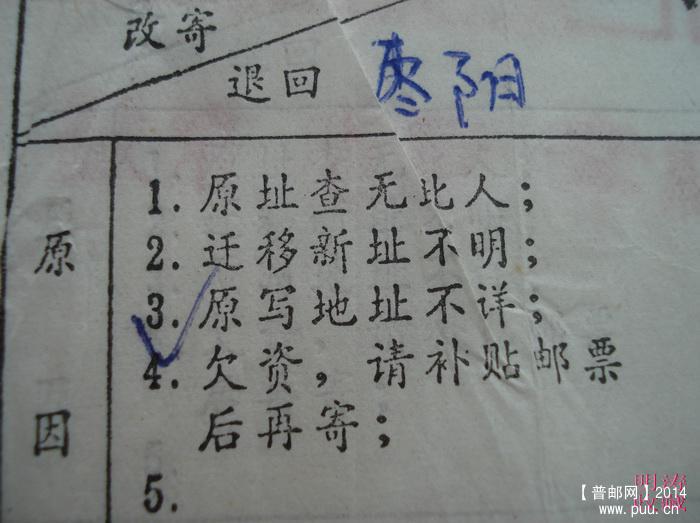 改寄
退回 枣阳
原因
1. 原址查无比人；
2. 迁移新址不明；
3. 原写地址不详；
4. 欠资，请补贴邮票
后再寄；
5.
【普邮网】2014
www.puu.cn